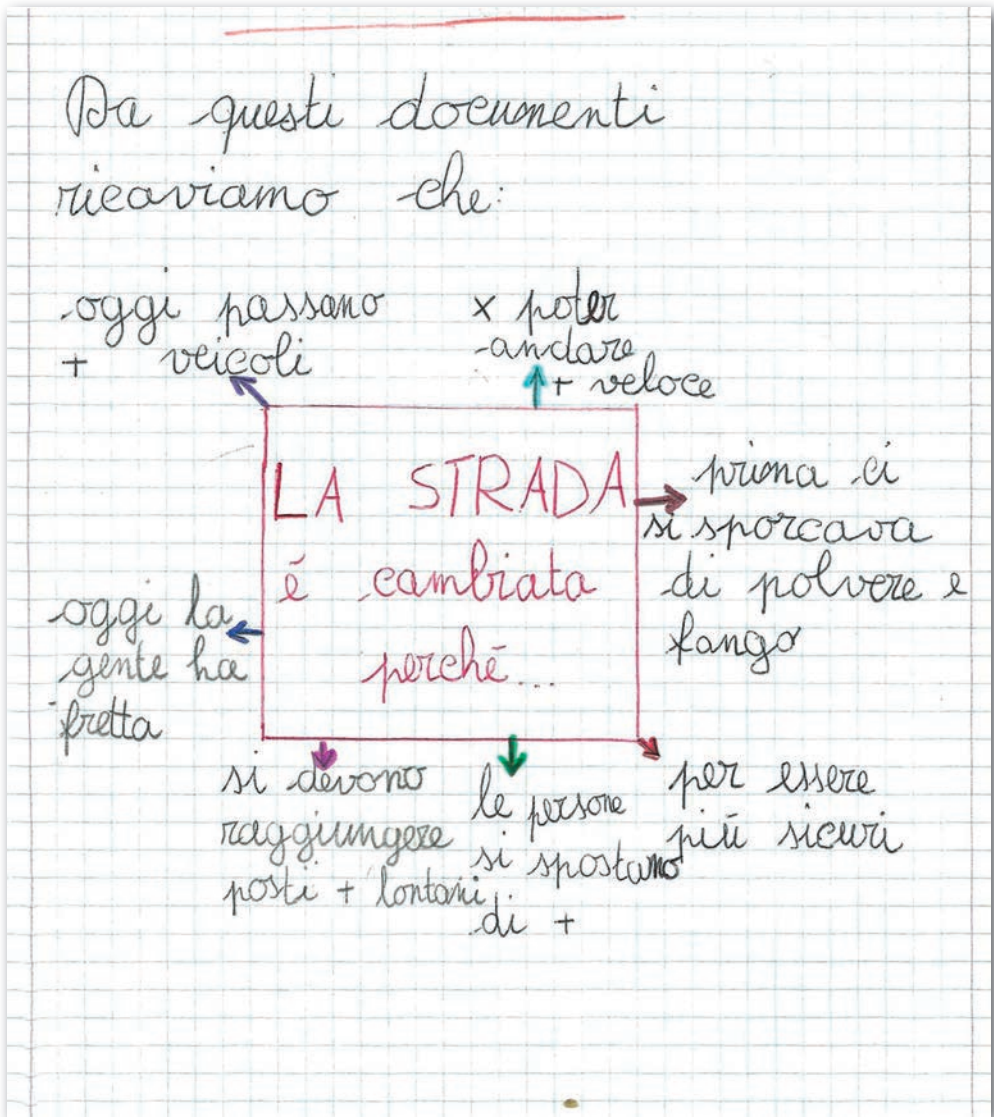 Da questi documenti
ricaviamo che:
oggi passano
+ veicoli
x poter
andare
+ veloce
LA STRADA
é cambiata
perché...
prima ci
si sporcava
di polvere e
fango
oggi la
gente ha
fretta
si devono
raggiungere
posti + lontani
le persone
si spostano
di +
per essere
più sicuri